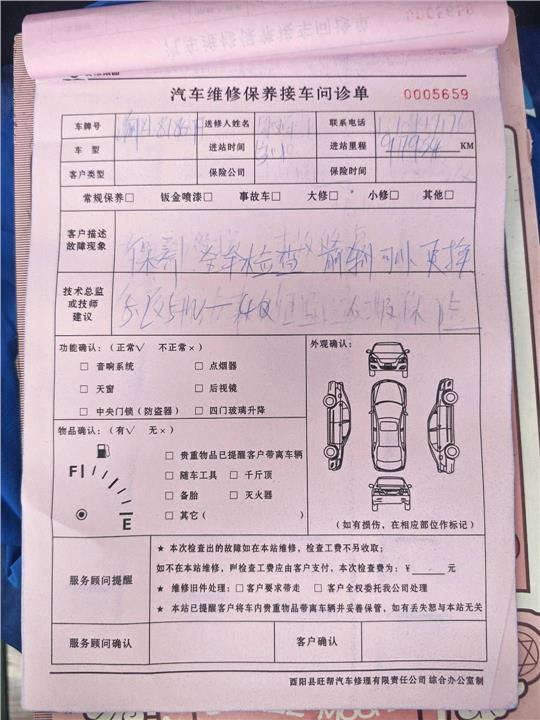 汽车维修保养接车问诊单 0005659
车牌号 送修人姓名 联系电话
车 型 进站时间 进站里程 97954 KM
客户类型 保险公司 保险时间
常规保养□ 钣金喷漆□ 事故车□ 大修□ 小修□ 其他□
客户描述
故障现象
保养 全车检查 前刹可以更换
技术总监
或技师
建议
功能确认：（正常√ 不正常×）
□ 音响系统 □ 点烟器
□ 天窗 □ 后视镜
□ 中央门锁（防盗器） □ 四门玻璃升降
外观确认：
物品确认：（有√ 无×）
F E
□ 贵重物品已提醒客户带离车辆
□ 随车工具 □ 千斤顶
□ 备胎 □ 灭火器
□ 其它（ ）
（如有损伤，在相应部位作标记）
服务顾问提醒
★ 本次检查出的故障如在本站维修，检查工费不另收取；
如不在本站维修，则检查工费应由客户支付，本次检查费为：￥____元
★ 维修旧件处理：□客户要求带走 □ 客户全权委托我公司处理
★ 本站已提醒客户将车内贵重物品带离车辆并妥善保管，如有丢失恕与本站无关
服务顾问确认 客户确认
酉阳县旺帮汽车修理有限责任公司 综合办公室制